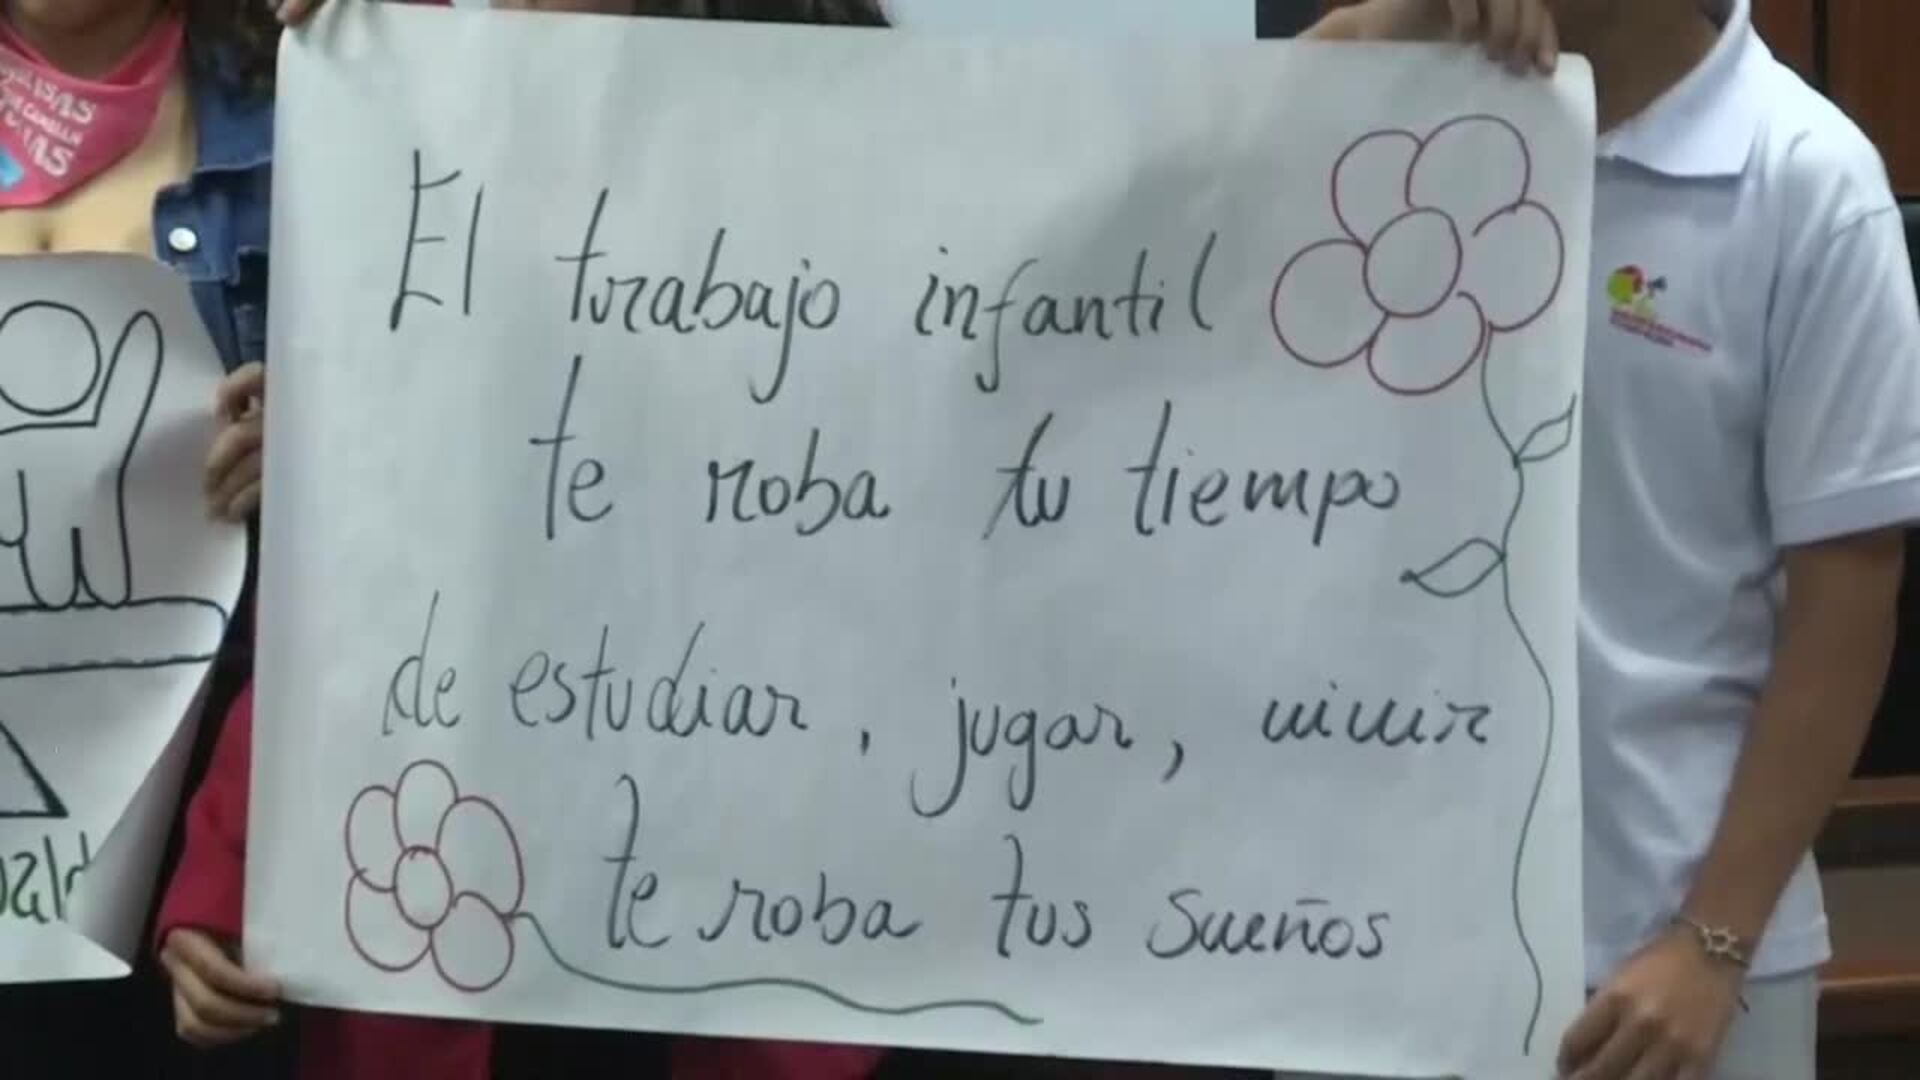 El trabajo infantil
te roba tu tiempo
de estudiar, jugar, vivir
te roba tus sueños